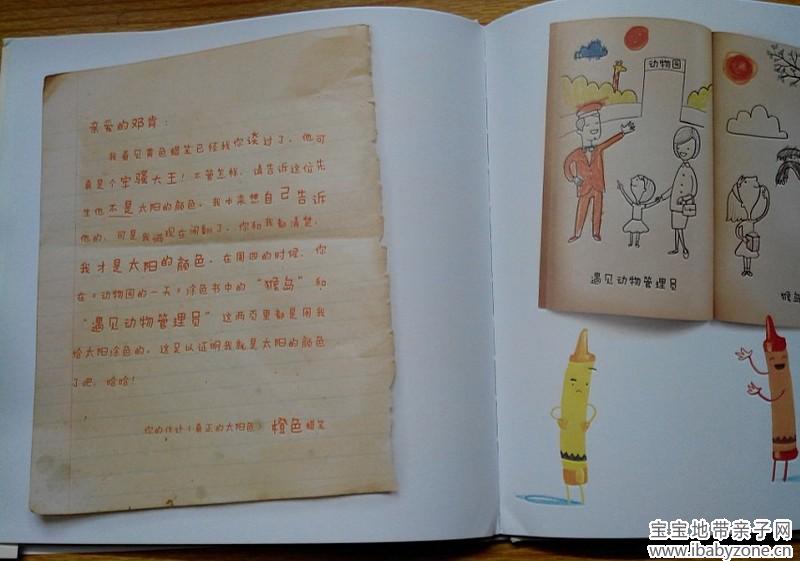 亲爱的邓肯：
我看见黄色蜡笔已经找你谈过了，他可
真是个牢骚大王！不管怎样，请告诉这位先
生他不是太阳的颜色。我本来想自己告诉
他的，可是我俩现在闹翻了。你和我都清楚，
我才是太阳的颜色。在周四的时候，你
在《动物园的一天》涂色书中的“猴岛”和
“遇见动物管理员”这两页里都是用我
给太阳涂色的。这足以证明我就是太阳的颜色
了吧，哈哈！
你的伙计（真正的太阳色） 橙色蜡笔
动物园
遇见动物管理员
猴岛
宝宝地带亲子网
www.ibabyzone.cn